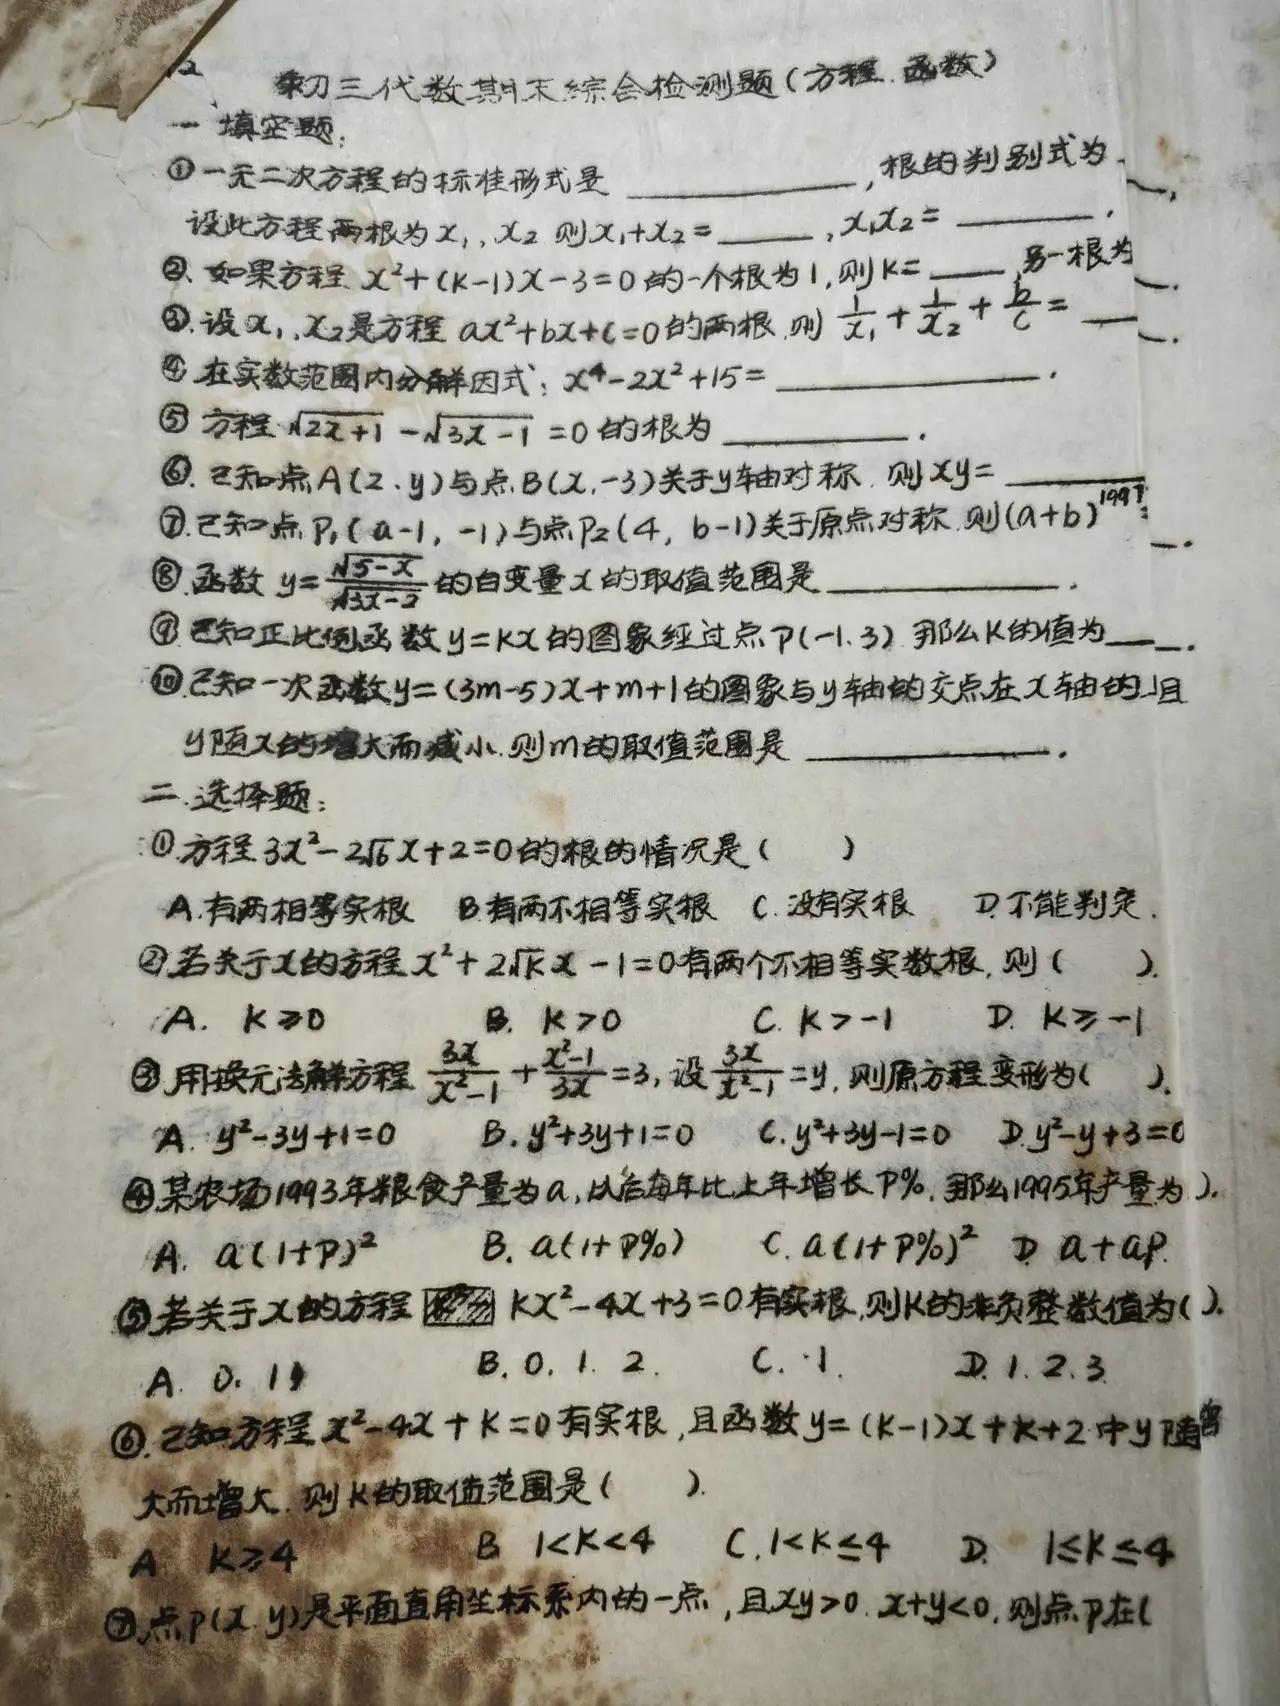 初三代数期末综合检测题(方程.函数)
一 填空题:
①一元二次方程的标准形式是________,根的判别式为__,
设此方程两根为x₁,x₂ 则x₁+x₂=____,x₁x₂=______.
②.如果方程 x²+(k-1)x-3=0的一个根为1,则k=___,另一根为__.
③.设x₁,x₂是方程 ax²+bx+c=0的两根,则 1/x₁+1/x₂+b/c=____.
④.在实数范围内分解因式: x⁴-2x²+15=__________.
⑤ 方程√(2x+1)-√(3x-1)=0的根为________.
⑥.已知点A(2.y)与点B(x,-3)关于y轴对称.则xy=______
⑦.已知点P₁(a-1,-1)与点P₂(4,b-1)关于原点对称.则(a+b)¹⁹⁹⁷=__.
⑧.函数 y=√(5-x)/√(3x-2)的自变量x的取值范围是________.
⑨已知正比例函数y=kx的图象经过点P(-1.3).那么k的值为____.
⑩已知一次函数y=(3m-5)x+m+1的图象与y轴的交点在x轴的上且
y随x的增大而减小.则m的取值范围是________.
二.选择题:
①.方程3x²-2√6x+2=0的根的情况是( )
A.有两相等实根 B.有两不相等实根 C.没有实根 D.不能判定.
②若关于x的方程x²+2√k x-1=0有两个不相等实数根,则( ).
A. k≥0 B. k>0 C. k>-1 D. k≥-1
③用换元法解方程 3x/(x²-1)+(x²-1)/3x=3,设3x/(x²-1)=y,则原方程变形为( ).
A. y²-3y+1=0 B. y²+3y+1=0 C. y²+3y-1=0 D. y²-y+3=0
④某农场1993年粮食产量为a,以后每年比上年增长P%,那么1995年产量为 ).
A. a(1+P)² B. a(1+P%) C. a(1+P%)² D. a+aP.
⑤若关于x的方程 kx²-4x+3=0有实根.则k的非负整数值为( ).
A. 0.1 B. 0.1.2. C. 1. D. 1.2.3
⑥.已知方程x²-4x+k=0有实根,且函数y=(k-1)x+k+2中y随增
大而增大.则k的取值范围是( ).
A k≥4 B 1<k<4 C. 1<k≤4 D. 1≤k≤4
⑦.点P(x.y)是平面直角坐标系内的一点,且xy>0.x+y<0.则点P在(